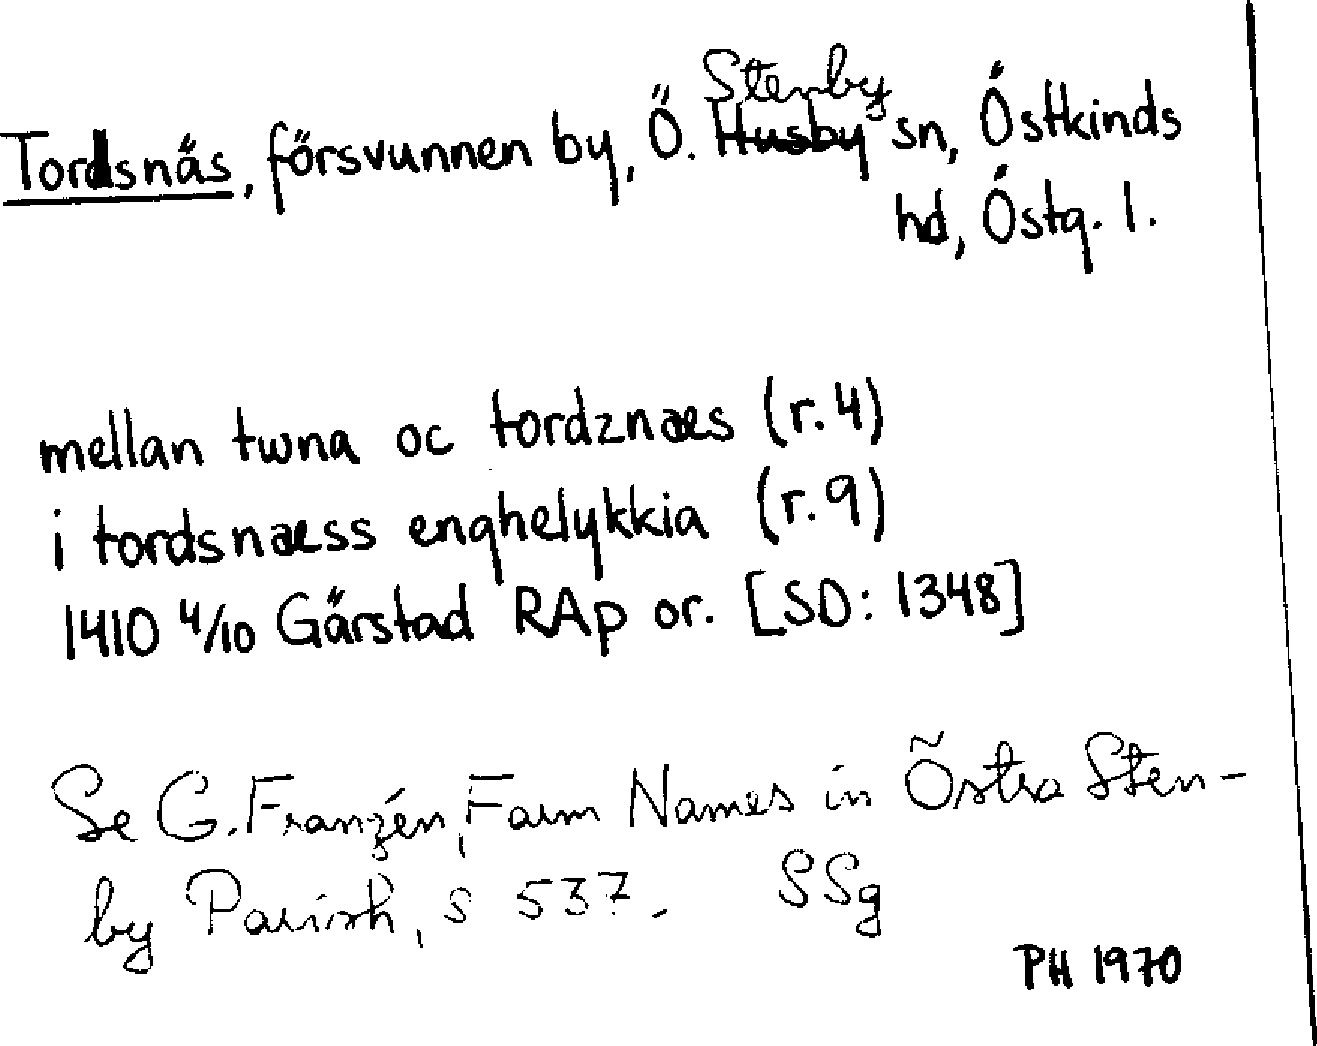 Tordsnäs, försvunnen by, Ö. Stenby sn, Östkinds
hd, Östg. l.
mellan twna oc tordznæs (r. 4)
i tordsnæss enghelykkia (r. 9)
1410 4/10 Gärstad RAp or. [SD: 1348]
Se G. Franzén, Farm Names in Östra Sten-
by Parish, s 537. SSg
PH 1970